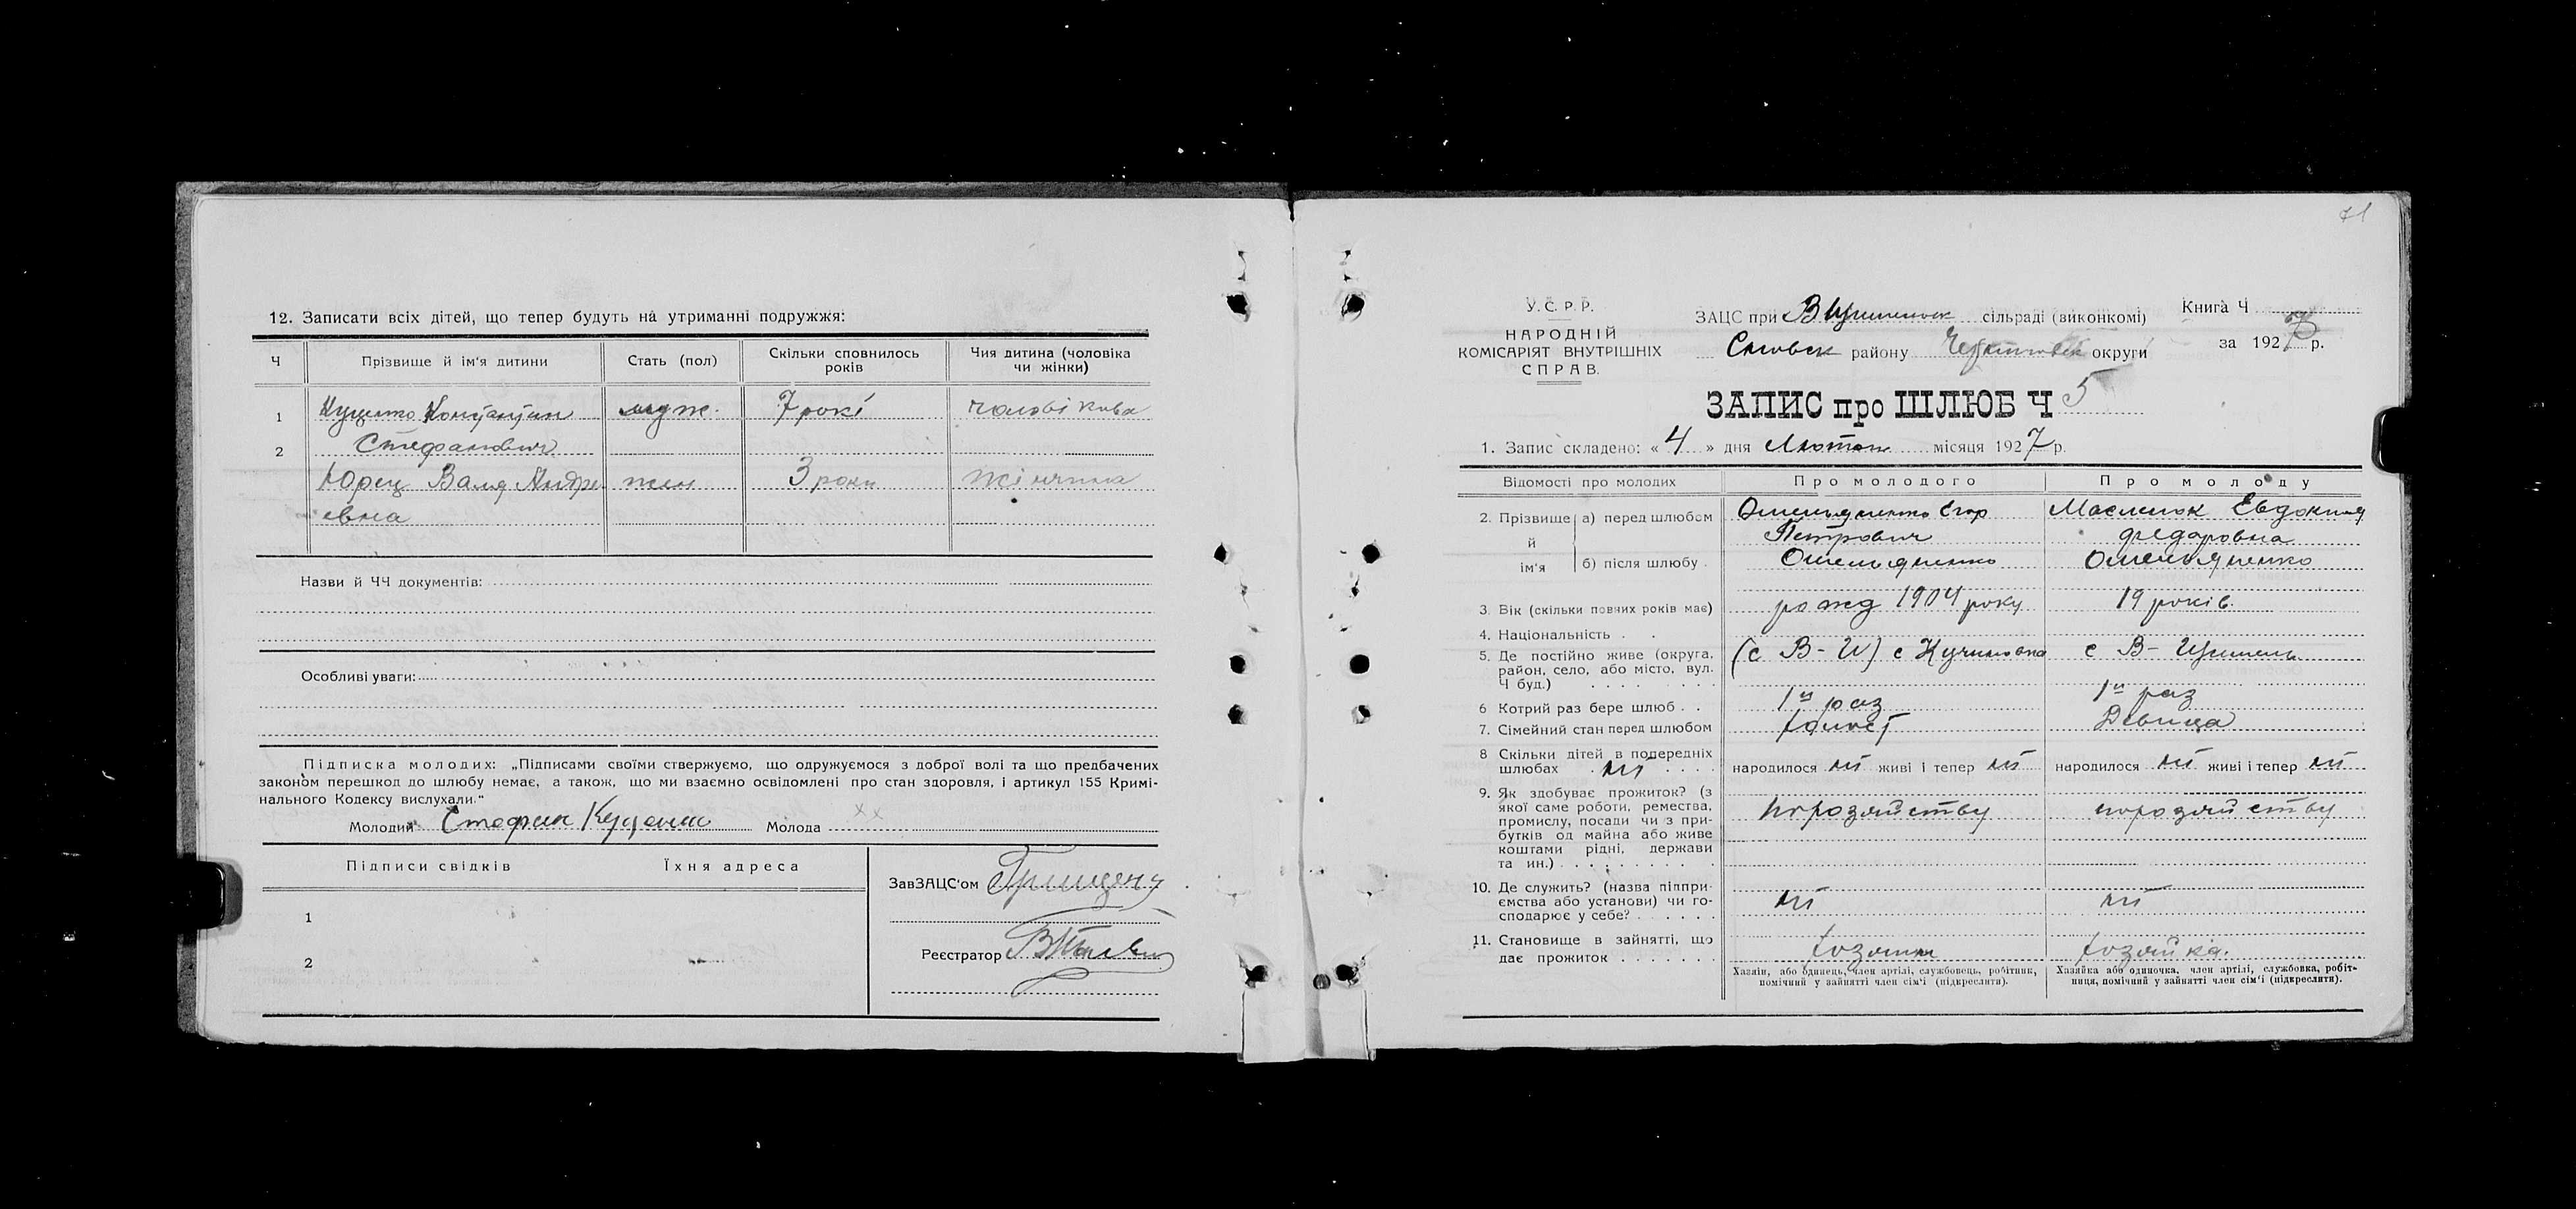 12. Записати всіх дітей, що тепер будуть на утриманні подружжя:
Ч
Прізвище й ім'я дитини
Стать (пол)
Скільки сповнилось років
Чия дитина (чоловіка чи жінки)
1
Куценко
муж.
7 рокі
чоловікова
2
Стефанович
Юрец Валя Андре
жен
3 роки
жіночина
евна
Назви й ЧЧ документів:
Особливі уваги:
Підписка молодих: „Підписами своїми ствержуємо, що одружуємося з доброї волі та що предбачених
законом перешкод до шлюбу немає, а також, що ми взаємно освідомлені про стан здоровля, і артикул 155 Кримі-
нального Кодексу вислухали."
Молодий Стефан
Молода ××
Підписи свідків
Їхня адреса
1
2
ЗавЗАЦС'ом
Реєстратор
71
У. С. Р. Р.
НАРОДНІЙ
КОМІСАРІЯТ ВНУТРІШНІХ
СПРАВ.
ЗАЦС при сільраді (виконкомі)
району округи
Книга Ч
за 1927 р.
ЗАПИС про ШЛЮБ Ч 5
1. Запис складено: « 4 » дня Лютого місяця 1927 р.
Відомості про молодих
Про молодого
Про молоду
2. Прізвище й ім'я
а) перед шлюбом
Омельяненко Егор
Петрович
Масленок Евдокия
Федоровна
б) після шлюбу
Омельяненко
Омельяненко
3. Вік (скільки повних років має)
рожд 1904 року
19 років
4. Національність . .
5. Де постійно живе (округа,
район, село, або місто, вул.
Ч буд.) . . . .
(с В-И) с Кучиновка
с В-
6 Котрий раз бере шлюб . .
1й раз
1й раз
7. Сімейний стан перед шлюбом
холост
Девица
8 Скільки дітей в попередніх
шлюбах . ні . . . .
народилося ні живі і тепер ні
народилося ні живі і тепер ні
9. Як здобуває прожиток? (з
якої саме роботи, ремества,
промислу, посади чи з при-
бутків од майна або живе
коштами рідні, держави
та ин.) . . . . . . . .
похозяйству
похозяйству
10. Де служить? (назва підпри-
ємства або установи) чи го-
сподарює у себе? . . . . .
ні
ні
11. Становище в зайнятті, що
дає прожиток . . . . . . .
хозяин
хозяйка.
Хазяїн, або одинець, член артілі, службовець, робітник,
помічний у зайнятті член сім'ї (підкреслити).
Хазяйка або одиночка, член артілі, службовка, робіт-
ниця, помічний у зайнятті член сім'ї (підкреслити).